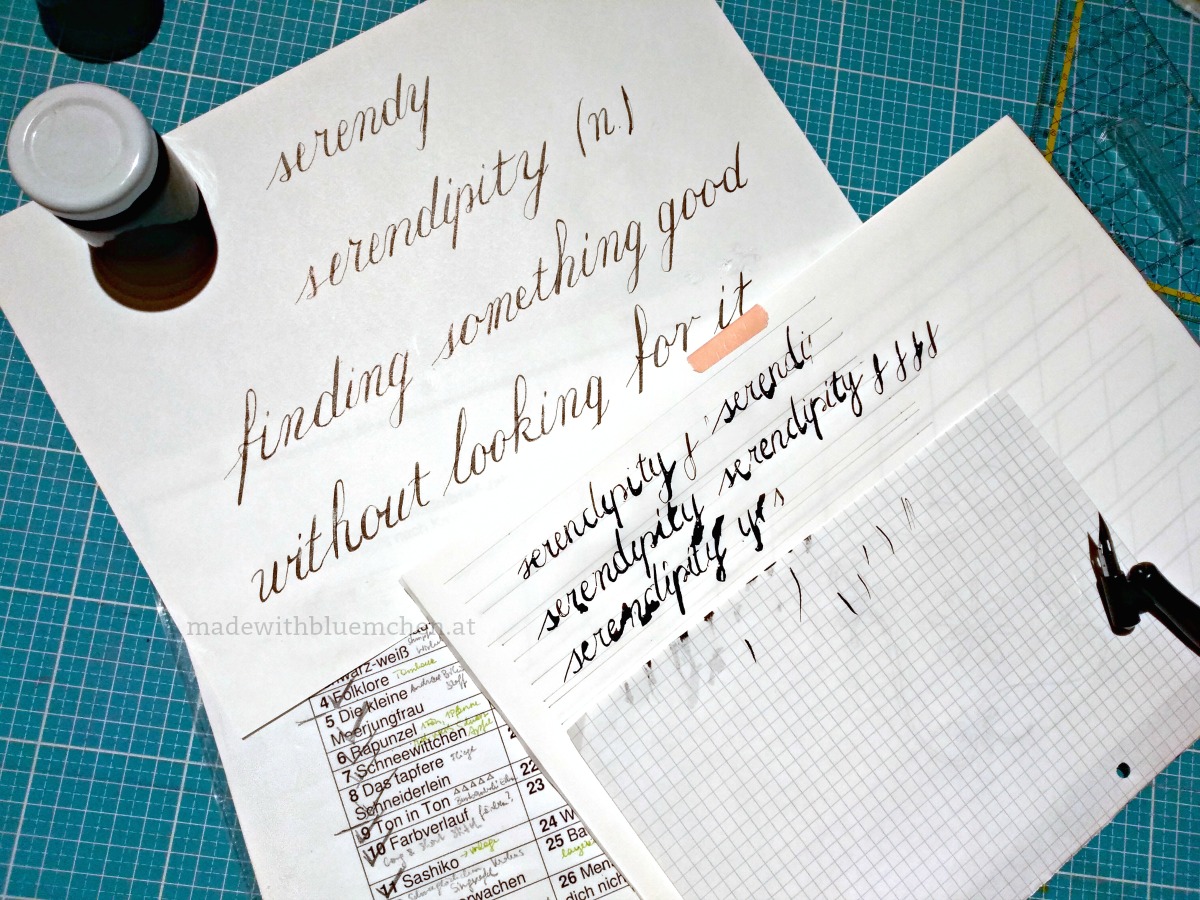 serendy
serendipity (n.)
finding something good
without looking for it
serendipity serendi
serendipity serendipity
serendipity
madewithbluemchen.at
4 Folklore
5 Die kleine
Meerjungfrau
6 Rapunzel
7 Schneewittchen
8 Das tapfere
Schneiderlein
9 Ton in Ton
10 Farbverlauf
11 Sashiko
22
23
24 W
25 Ba
26 Men
dich nich